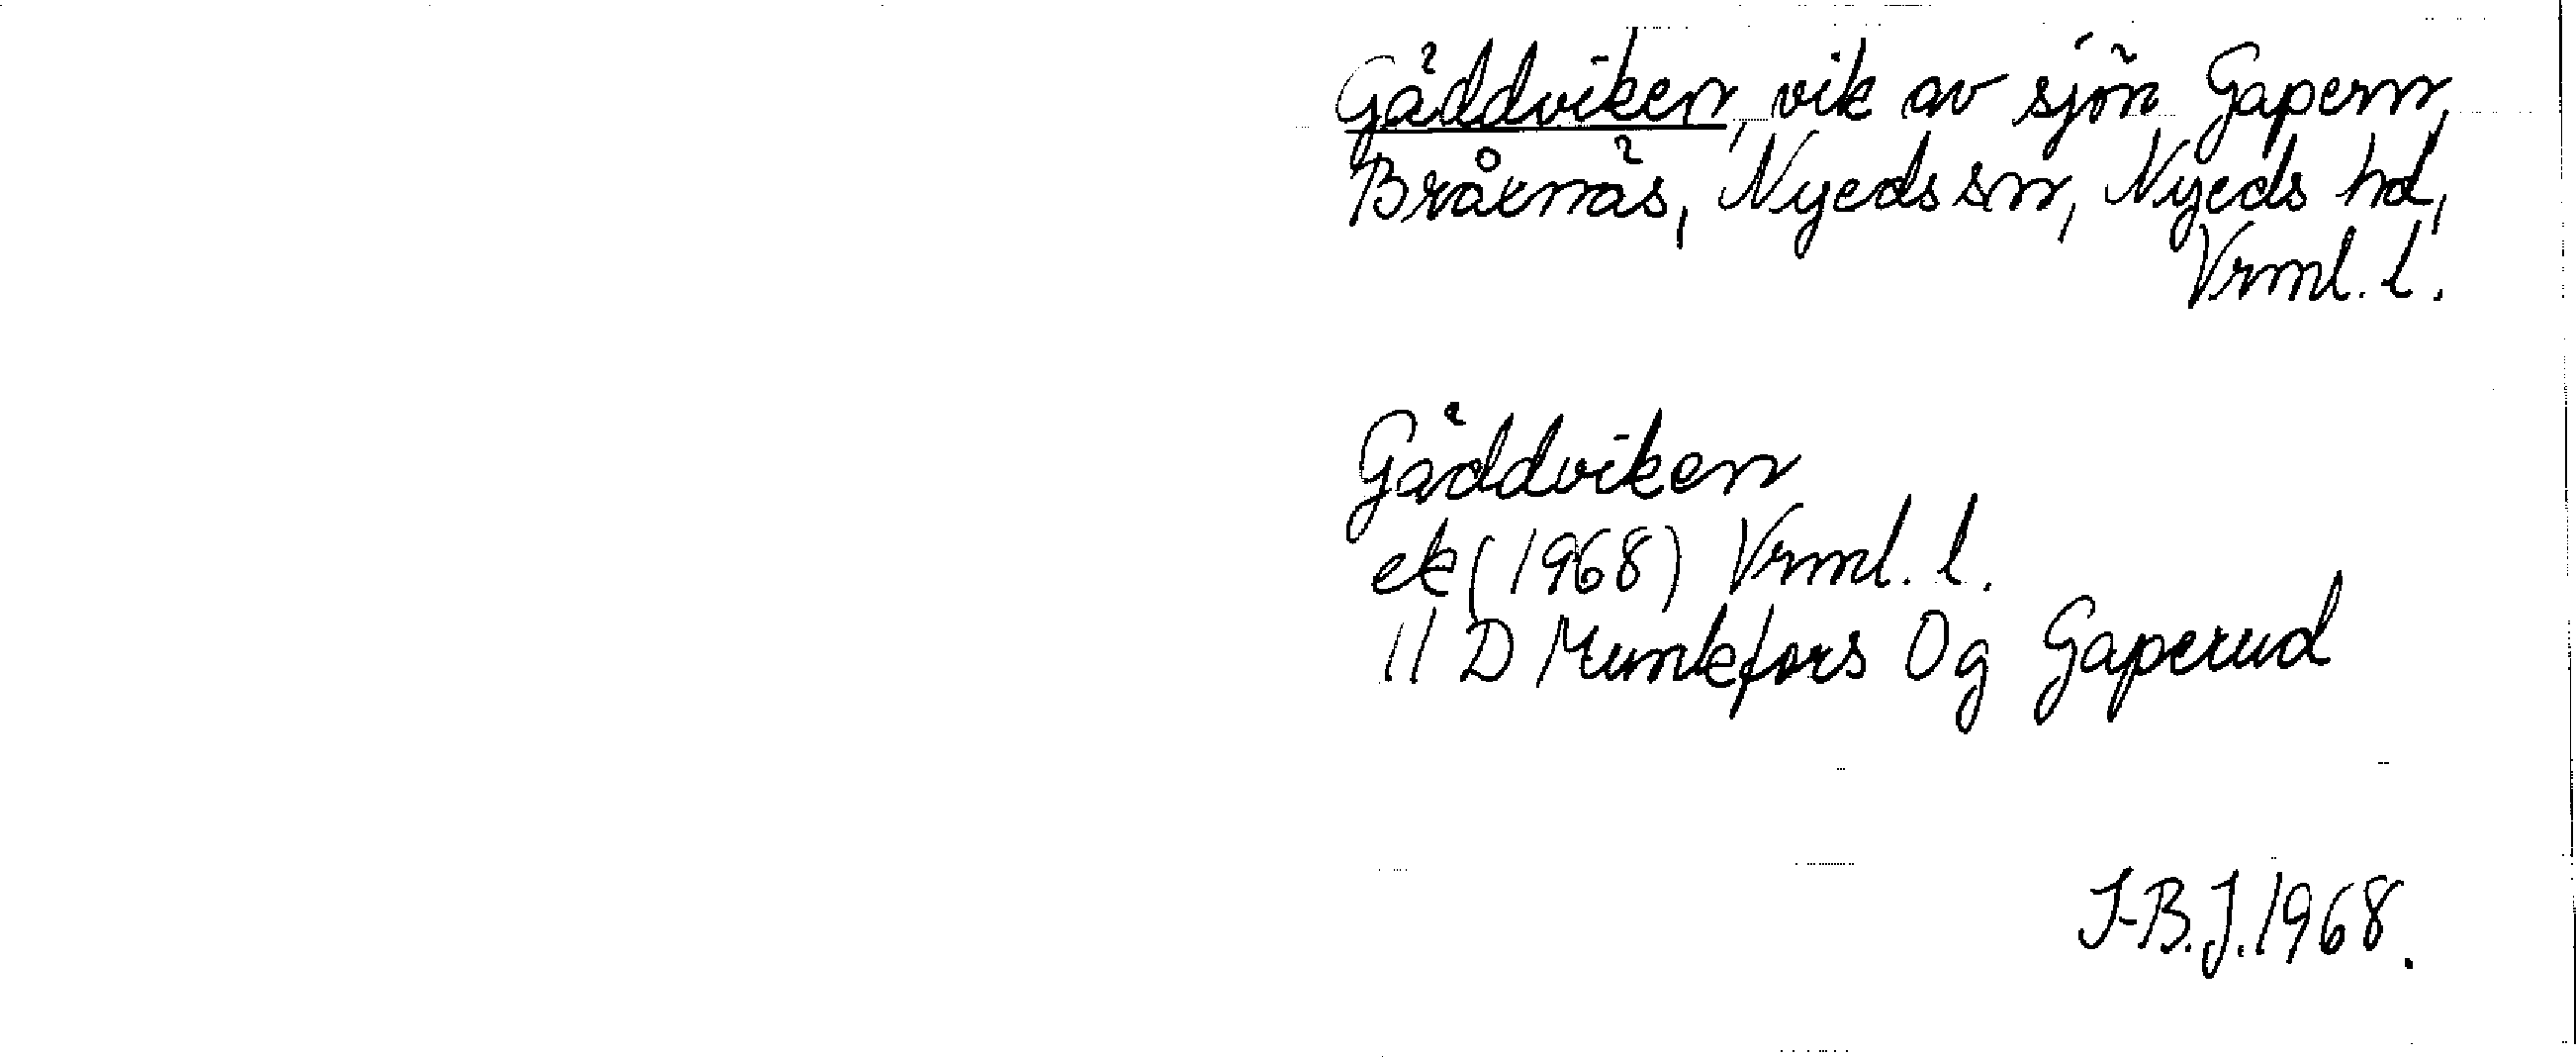 Gäddviken, vik av sjön Gapern,
Bråtnäs, Nyeds sn, Nyeds hd,
Vrml. l.
Gäddviken
ek (1968) Vrml. l.
11 D Munkfors 0g Gaperud
I-B.J. 1968.